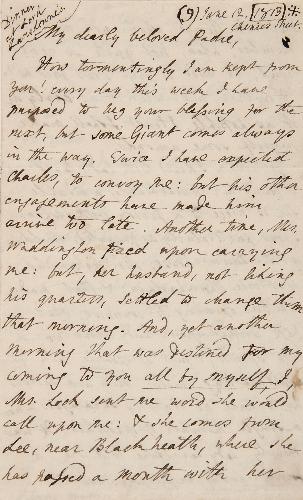 Dinner
Lord
Lansdowne's
(9) June 12, 1813 ⁂
Chenies Street.
My dearly beloved Padre,
How tormentingly I am kept from
you! every day this week I have
purposed to beg your blessing for the
next, but some Giant comes always
in the way. Twice I have expected
Charles, to convoy me: but his other
engagements have made him
arrive too late. Another time, Mrs.
Waddington fixed upon carrying
me: but, her husband, not liking
his quarters, settled to change them
that morning. And, yet another
morning that was destined for my
coming to you all by myself I,
Mrs. Lock sent me word she would
call upon me: & she comes from
Lee, near Blackheath, where she
has passed a month with her